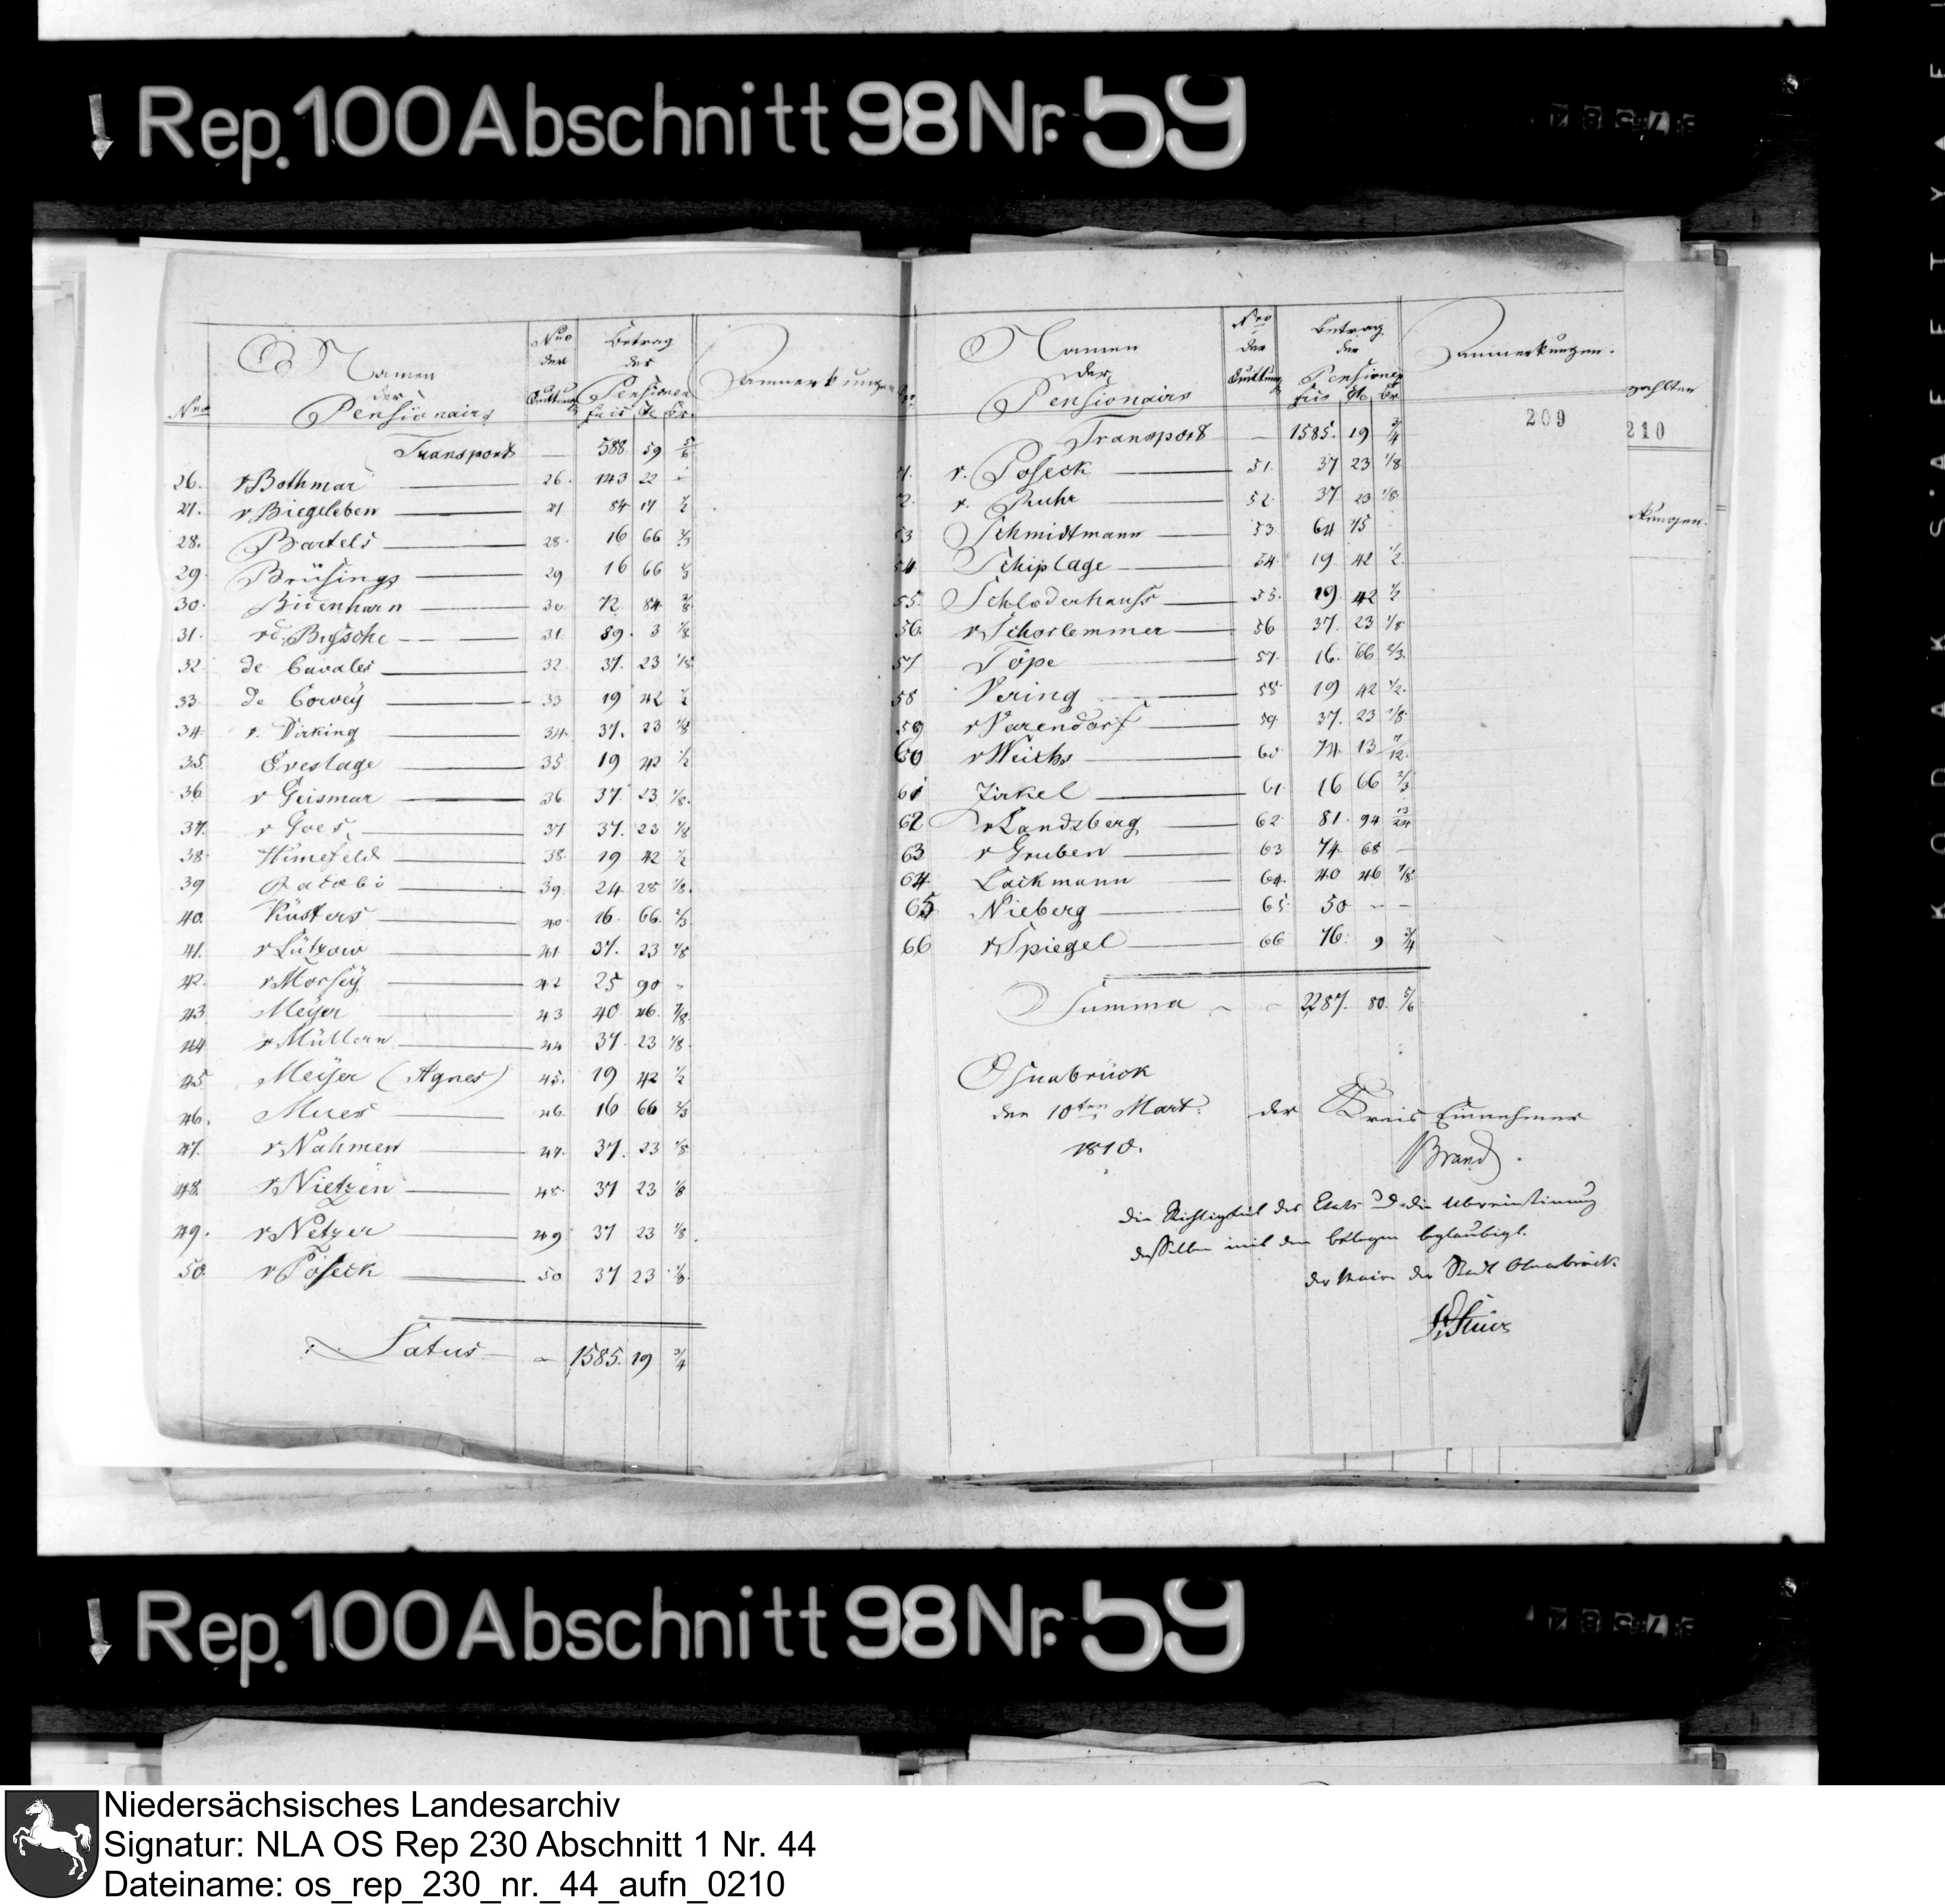 Rep. 100 Abschnitt 98 Nr. 59
Nro Namen der Pensionairs Nro der Quittung Betrag der Pensionen frcs Cts Br. Anmerkungen
Transport — 588 59 5/6
26. v Bothmar — 26. 143 22 -
27. v Biegeleben — 27 84 17 1/2
28. Bartels — 28. 16 66 2/3
29. Brüsings — 29 16 66 2/3
30. Bidenharn — 30. 72 84 3/8
31. v d. Bussche — 31. 89. 3 1/8
32. de Cavales — 32. 37. 23 1/8
33. de Corvey — 33 19 42 1/2
34. v. Dirking — 34. 37. 23 1/8
35. Eveslage — 35 19 42 1/2
36. v Geismar — 36 37. 23 1/8.
37. v Goes — 37 37. 23 1/8
38. Himefeld — 38. 19 42 1/2
39 Jacobi — 39. 24 28 1/8.
40. Küsters — 40. 16. 66. 2/3
41. v Lützow — 41 37. 23 1/8
42. v Morsey — 42 25 90 -
43 Meyer — 43 40 46. 7/8.
44 v Müllern — 44 37. 23 1/8.
45 Meyer (Agnes) 45. 19 42 1/2
46. Mues — 46. 16 66 2/3
47. v Nahmen — 47. 37. 23 1/8
48. v Nietzen — 48. 37 23 1/8
49. v Netzer — 49 37 23 1/8.
50. v Poseck — 50 37 23 1/8.
Latus — 1585. 19 3/4
Namen der Pensionairs Nro der Quittung Betrag der Pensionen frcs Cts Br Anmerkungen.
209
Transport — 1585. 19 3/4
v. Poseck — 51. 37 23 1/8
v. Ruhr — 52 37. 23 1/8
53 Schmidtmann — 53. 64 75 -
54 Schiplage — 54. 19. 42 1/2.
55. Schloderhauss — 55. 19. 42 1/2
56. v Schorlemmer — 56 37. 23 1/8
57 Töpe — 57. 16. 66 2/3.
58 Vering — 58 19 42 1/2.
59 v Varendorf — 59 37. 23 1/8
60 v Weichs — 60 74 13 11/12.
61 Zirkel — 61. 16 66 2/3
62 v Landsberg — 62. 81. 94 13/24
63 v Gruben — 63 74 68 -
64. Lackmann — 64. 40 46 7/8
65 Nieberg — 65 50 - -
66 v Spiegel — 66 76. 9 3/4
Summa - - 2287. 80. 5/6
Osnabrück
den 10ten Mart. der Kreis Einnehmer
1810. Brand.
die Richtigkeit des Etats die Übereinstimung
desselben mit den belegen beglaubigt.
der Maire der Stadt Osnabrück.
Stüve
zahlten
210
kungen.
Rep. 100 Abschnitt 98 Nr. 59
KODAK SAFETY
Niedersächsisches Landesarchiv
Signatur: NLA OS Rep 230 Abschnitt 1 Nr. 44
Dateiname: os_rep_230_nr._44_aufn_0210